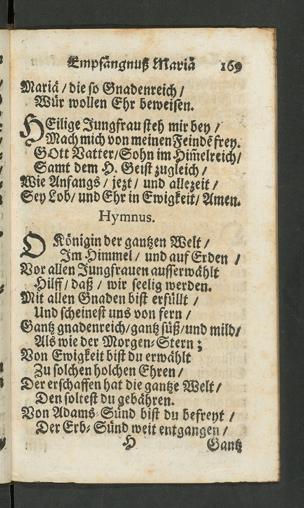 Empfängnuß Mariä 169
Mariä / die so Gnadenreich /
Wür wollen Ehr beweisen.
HEilige Jungfrau steh mir bey /
Mach mich von meinen Feinde frey.
GOtt Vatter / Sohn im Him̃elreich /
Samt dem H. Geist zugleich /
Wie Anfangs / jezt / und allezeit /
Sey Lob / und Ehr in Ewigkeit / Amen.
Hymnus.
O Königin der gantzen Welt /
Im Himmel / und auf Erden /
Vor allen Jungfrauen ausserwählt
Hilff / daß / wir seelig werden.
Mit allen Gnaden bist erfüllt /
Und scheinest uns von fern /
Gantz gnadenreich / gantz süß / und mild /
Als wie der Morgen-Stern ;
Von Ewigkeit bist du erwählt
Zu solchen holchen Ehren /
Der erschaffen hat die gantze Welt /
Den soltest du gebähren.
Von Adams Sünd bist du befreyt /
Der Erb-Sünd weit entgangen /
H Gantz